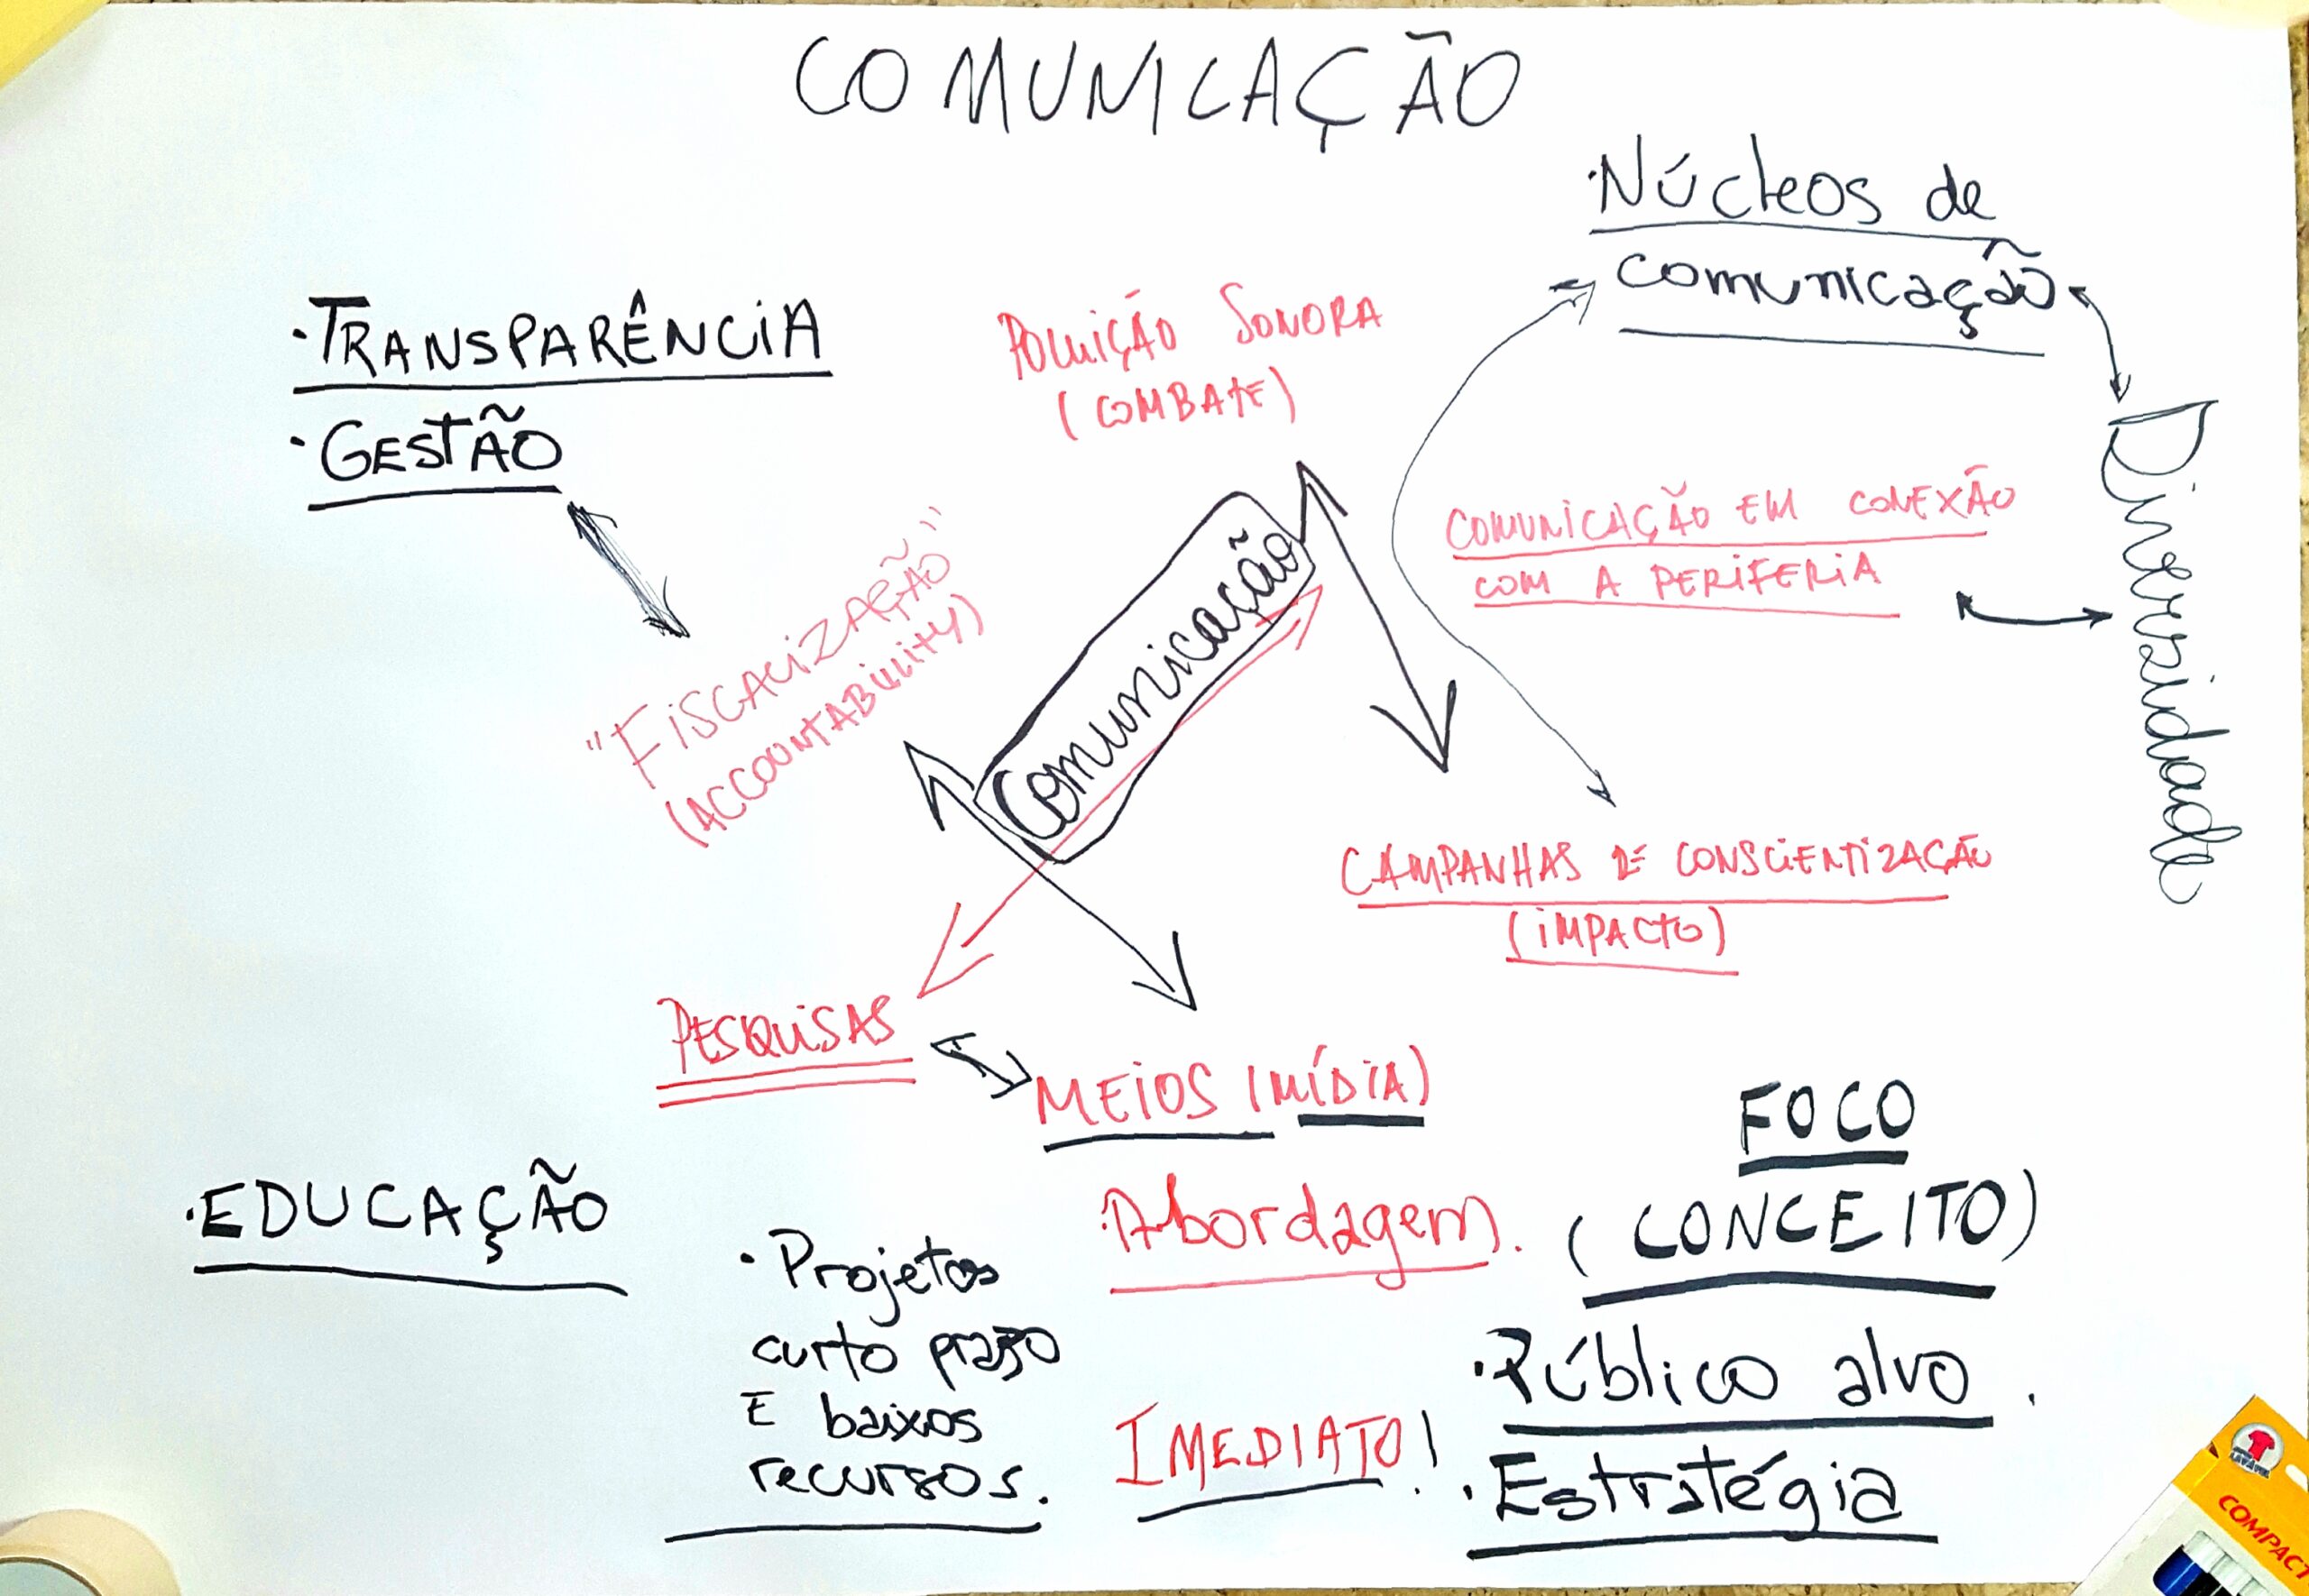 COMUNICAÇÃO
·Núcleos de
comunicação
·TRANSPARÊNCIA
·GESTÃO
POLUIÇÃO SONORA
(COMBATE)
COMUNICAÇÃO EM CONEXÃO
COM A PERIFERIA
Diversidade
"FISCALIZAÇÃO"
(ACCOUNTABILITY)
Comunicação
CAMPANHAS DE CONSCIENTIZAÇÃO
(IMPACTO)
PESQUISAS
MEIOS (MÍDIA)
·EDUCAÇÃO
·Projetos
curto prazo
E baixos
recursos.
·Abordagem.
IMEDIATO!
FOCO
(CONCEITO)
·Público alvo.
·Estratégia
COMPACT